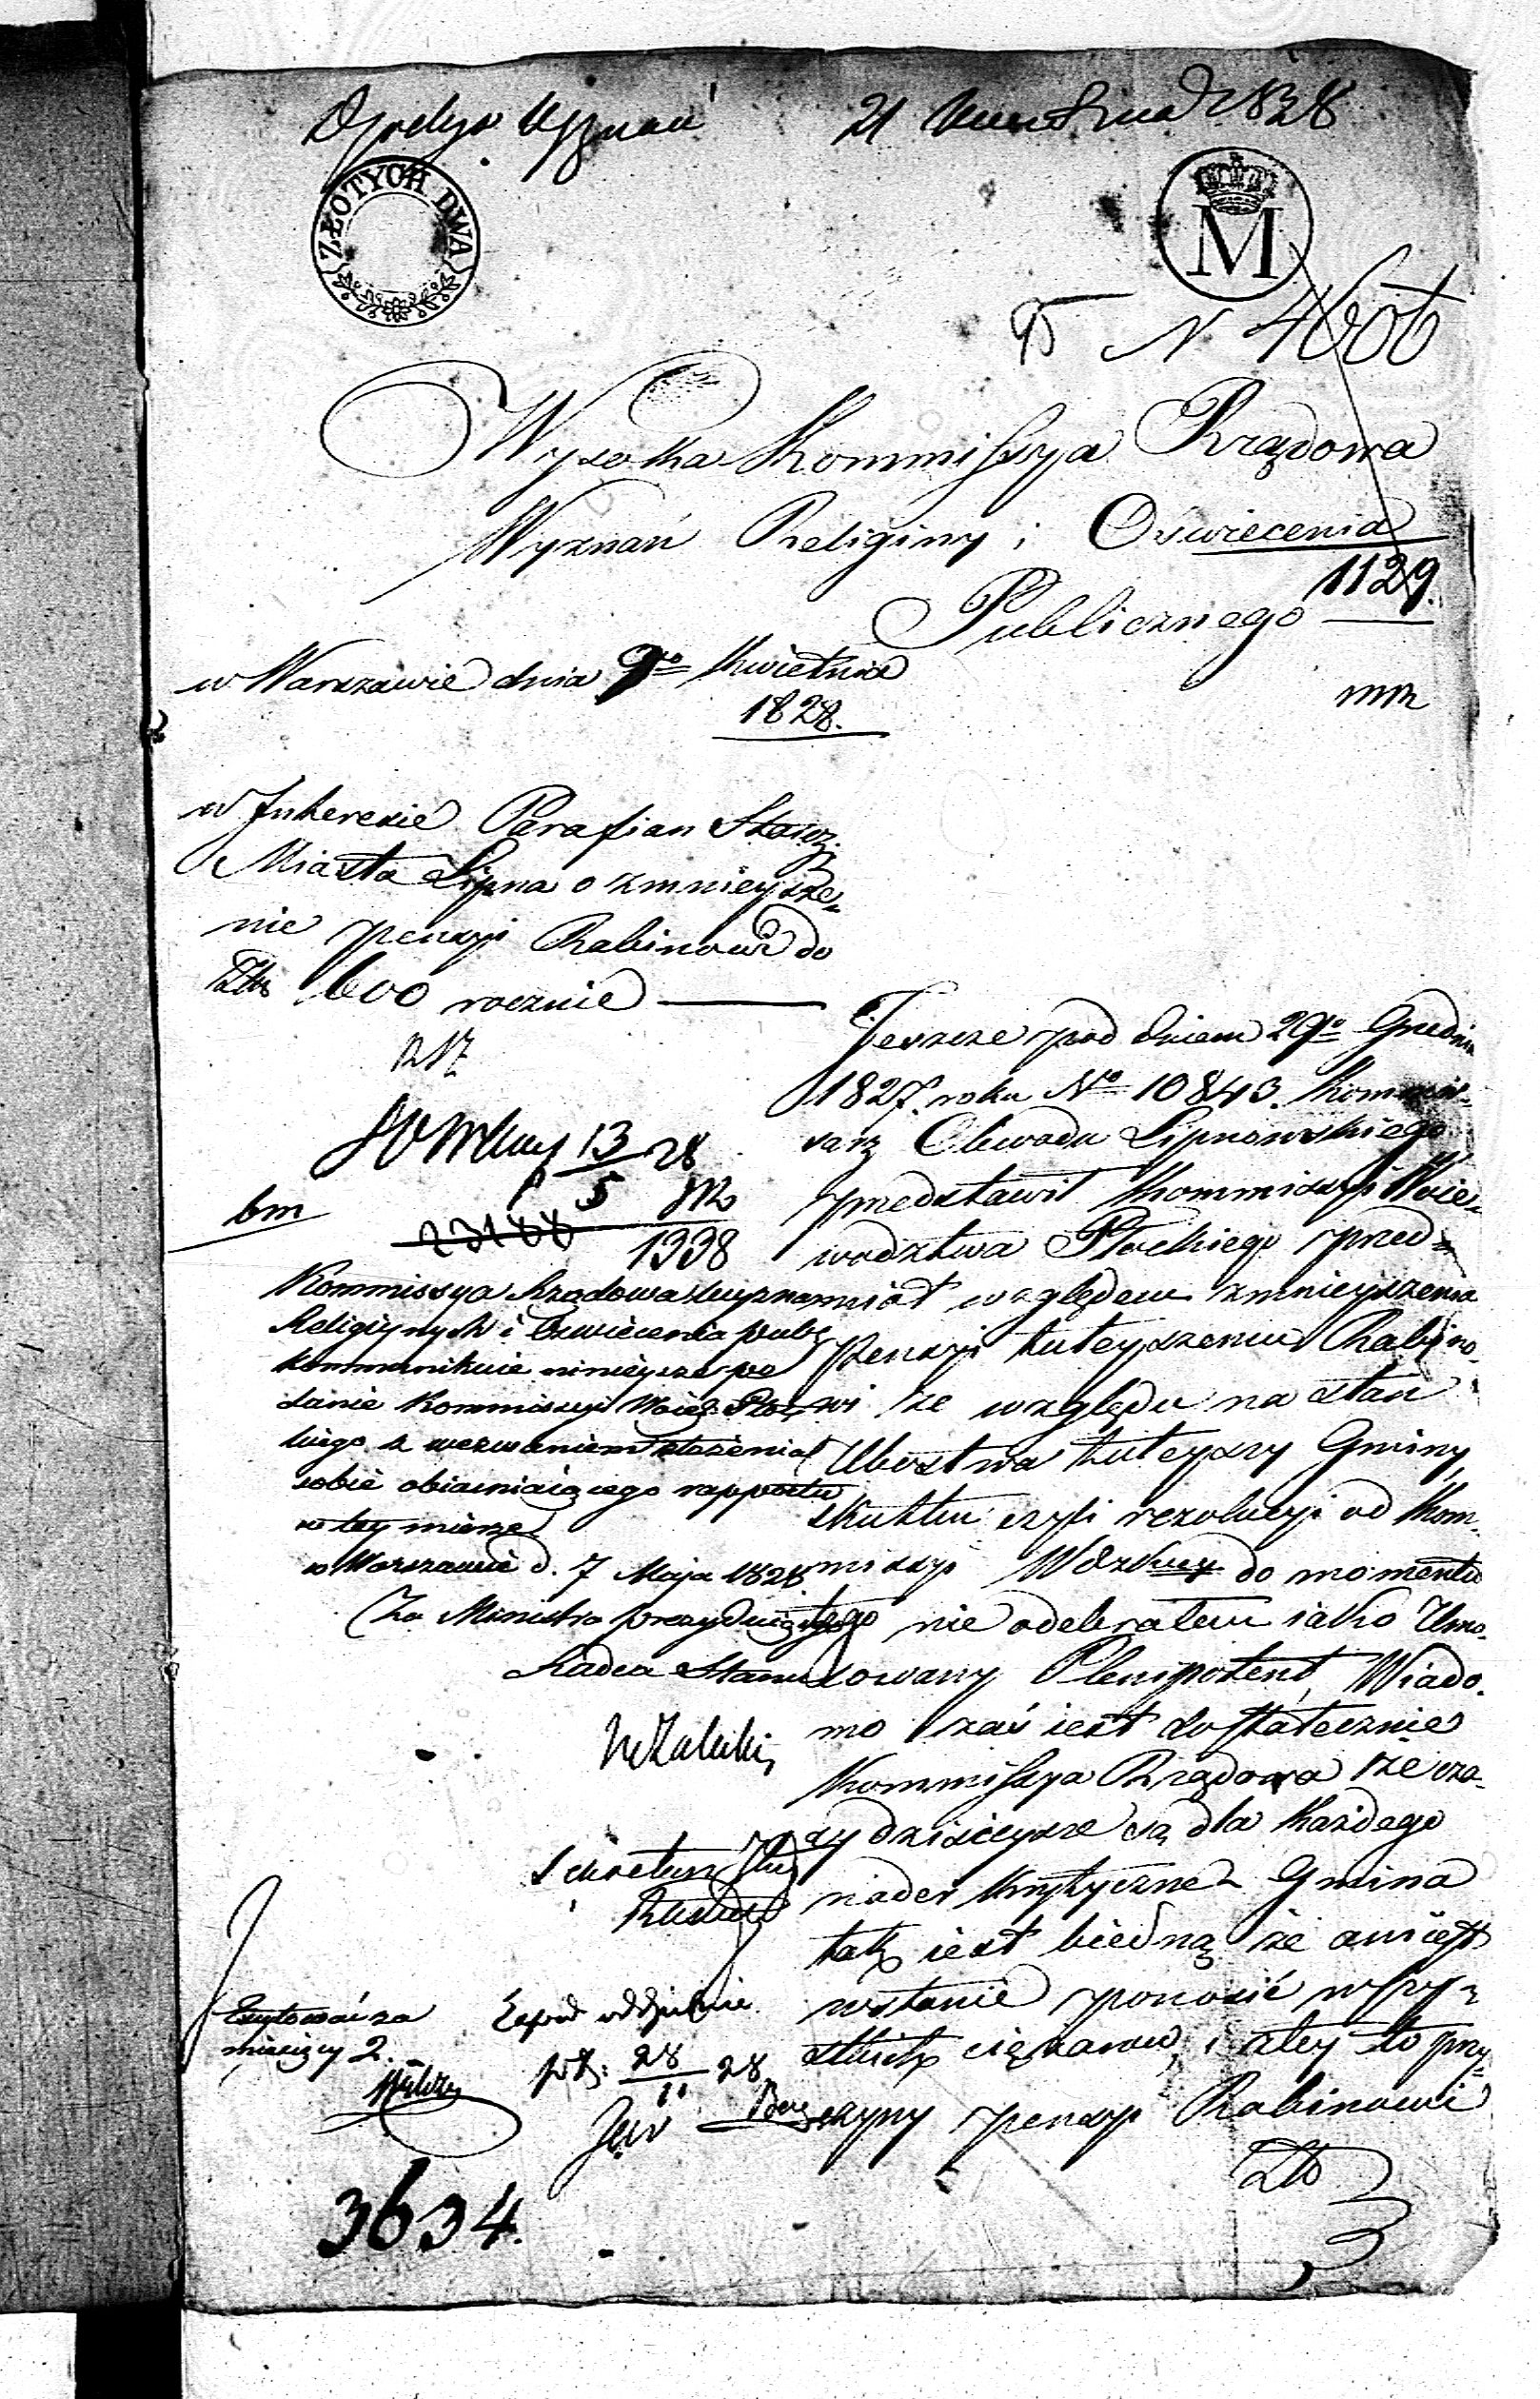 21 Kwietnia 1828
ZŁOTYCH DWA
M
N 4606
Wysoka Kommissya Rządowa
Wyznań Religiny i Oświecenia
1129.
Publicznego
w Warszawie dnia 9go Kwietnia
1828.
w Interesie Parafian Starz.
Miasta Lipna o zmnieysze„
nie pensyi Rabinowi do
Złt 600 rocznie
Jeszcze pod dniem 29go Grudnia
1827. roku No 10843. Kommis„
sarz Obwodu Lipnowskiego
przedstawił Kommissyi Woie„
wodztwa Płockiego przed„
miot względem zmnieyszenia
Pensyi tuteyszemu Rabino„
wi ze względu na stan
Ubostwa tuteyszy Gminy
skutku czyli rezolucyi od Kom„
missyi Wdzkiey do momentu
tego nie odebrałem iako Umo„
cowany Plenipotent, Wiado„
mo zaś iest dostatecznie
Kommissya Rządowa że cza„
sy dzisieysze są dla każdego
nader krytyczne Gmina
tak iest biedną że anijest
wstanie ponosić wszy„
stkich ciężarow, i z tey to przy„
czyny pensyi Rabinowi
Złt
13/5 28
bm
23188
1338
Kommissya Rządowa Wyznań
Religiynych i Oświecenia publ
kommunikuie ninieysze po
danie Kommissyi Woiew. Płoc
kiego z wezwaniem złożenia
sobie obiaśniaiącego rapportu
w tey mierze
w Warszawie d. 7 Maja 1828
Za Ministra Prezyduiącego
Radca Stanu
Sekretarz Jlny
Exytować za
miesięcy 2.
28/11 28
3634.